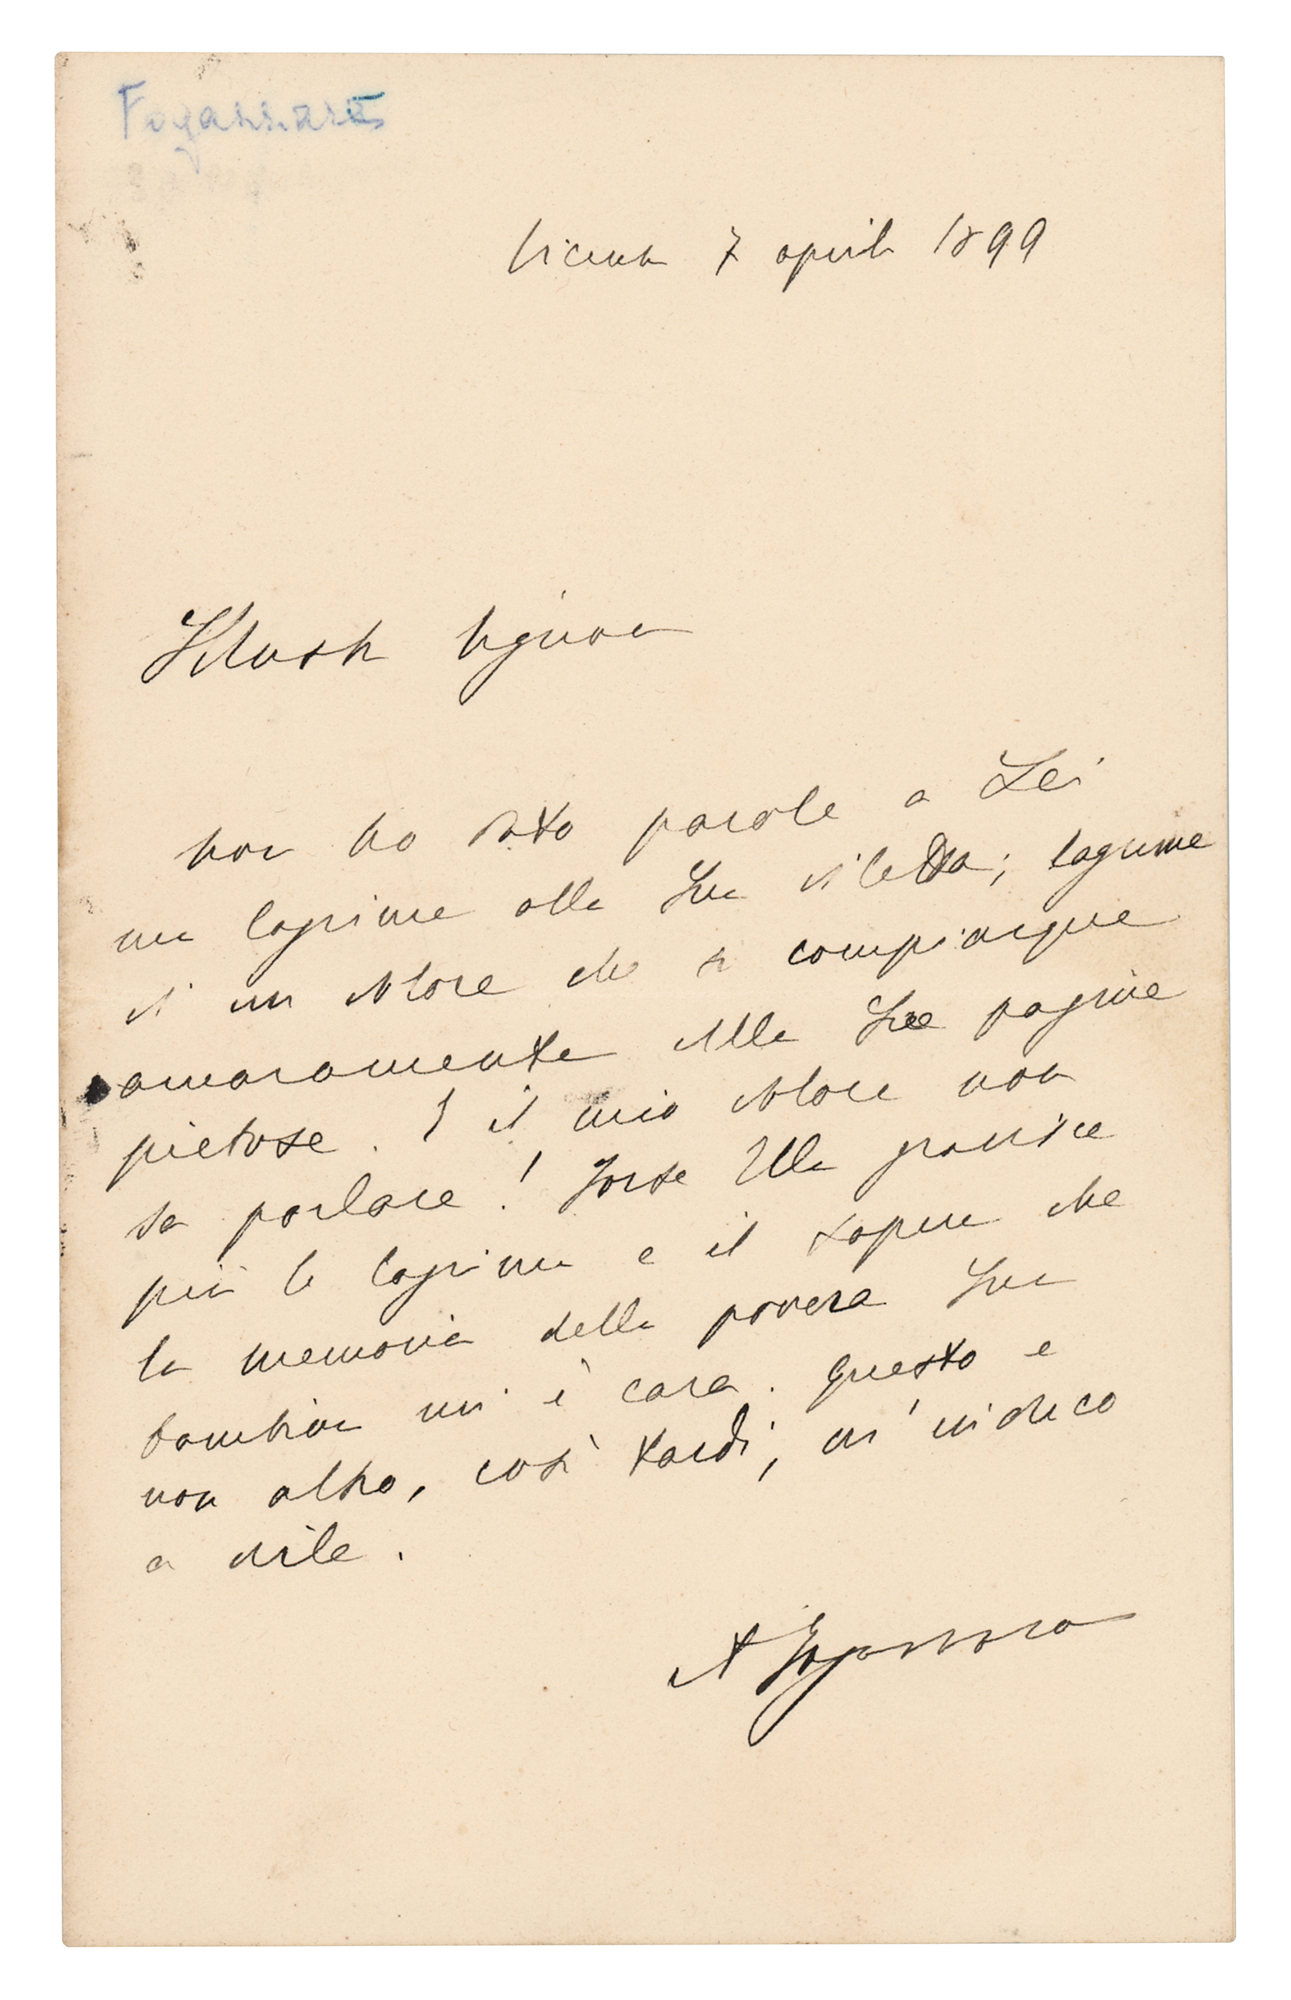 Fogazzaro
Vicenza 7 aprile 1899
Illustre Signora
Non ho dato parole a Lei
ma lagrime alla Sua diletta; lagrime
di un dolore che si compiangue
amaramente nelle Sue pagine
pietose. E il mio dolore non
sa parlare! Forse Ella gradisce
più le lagrime e il sapere che
la memoria della povera Sua
bambina mi è cara. Questo e
non altro, così tardi, m'induco
a dirle.
A Fogazzaro